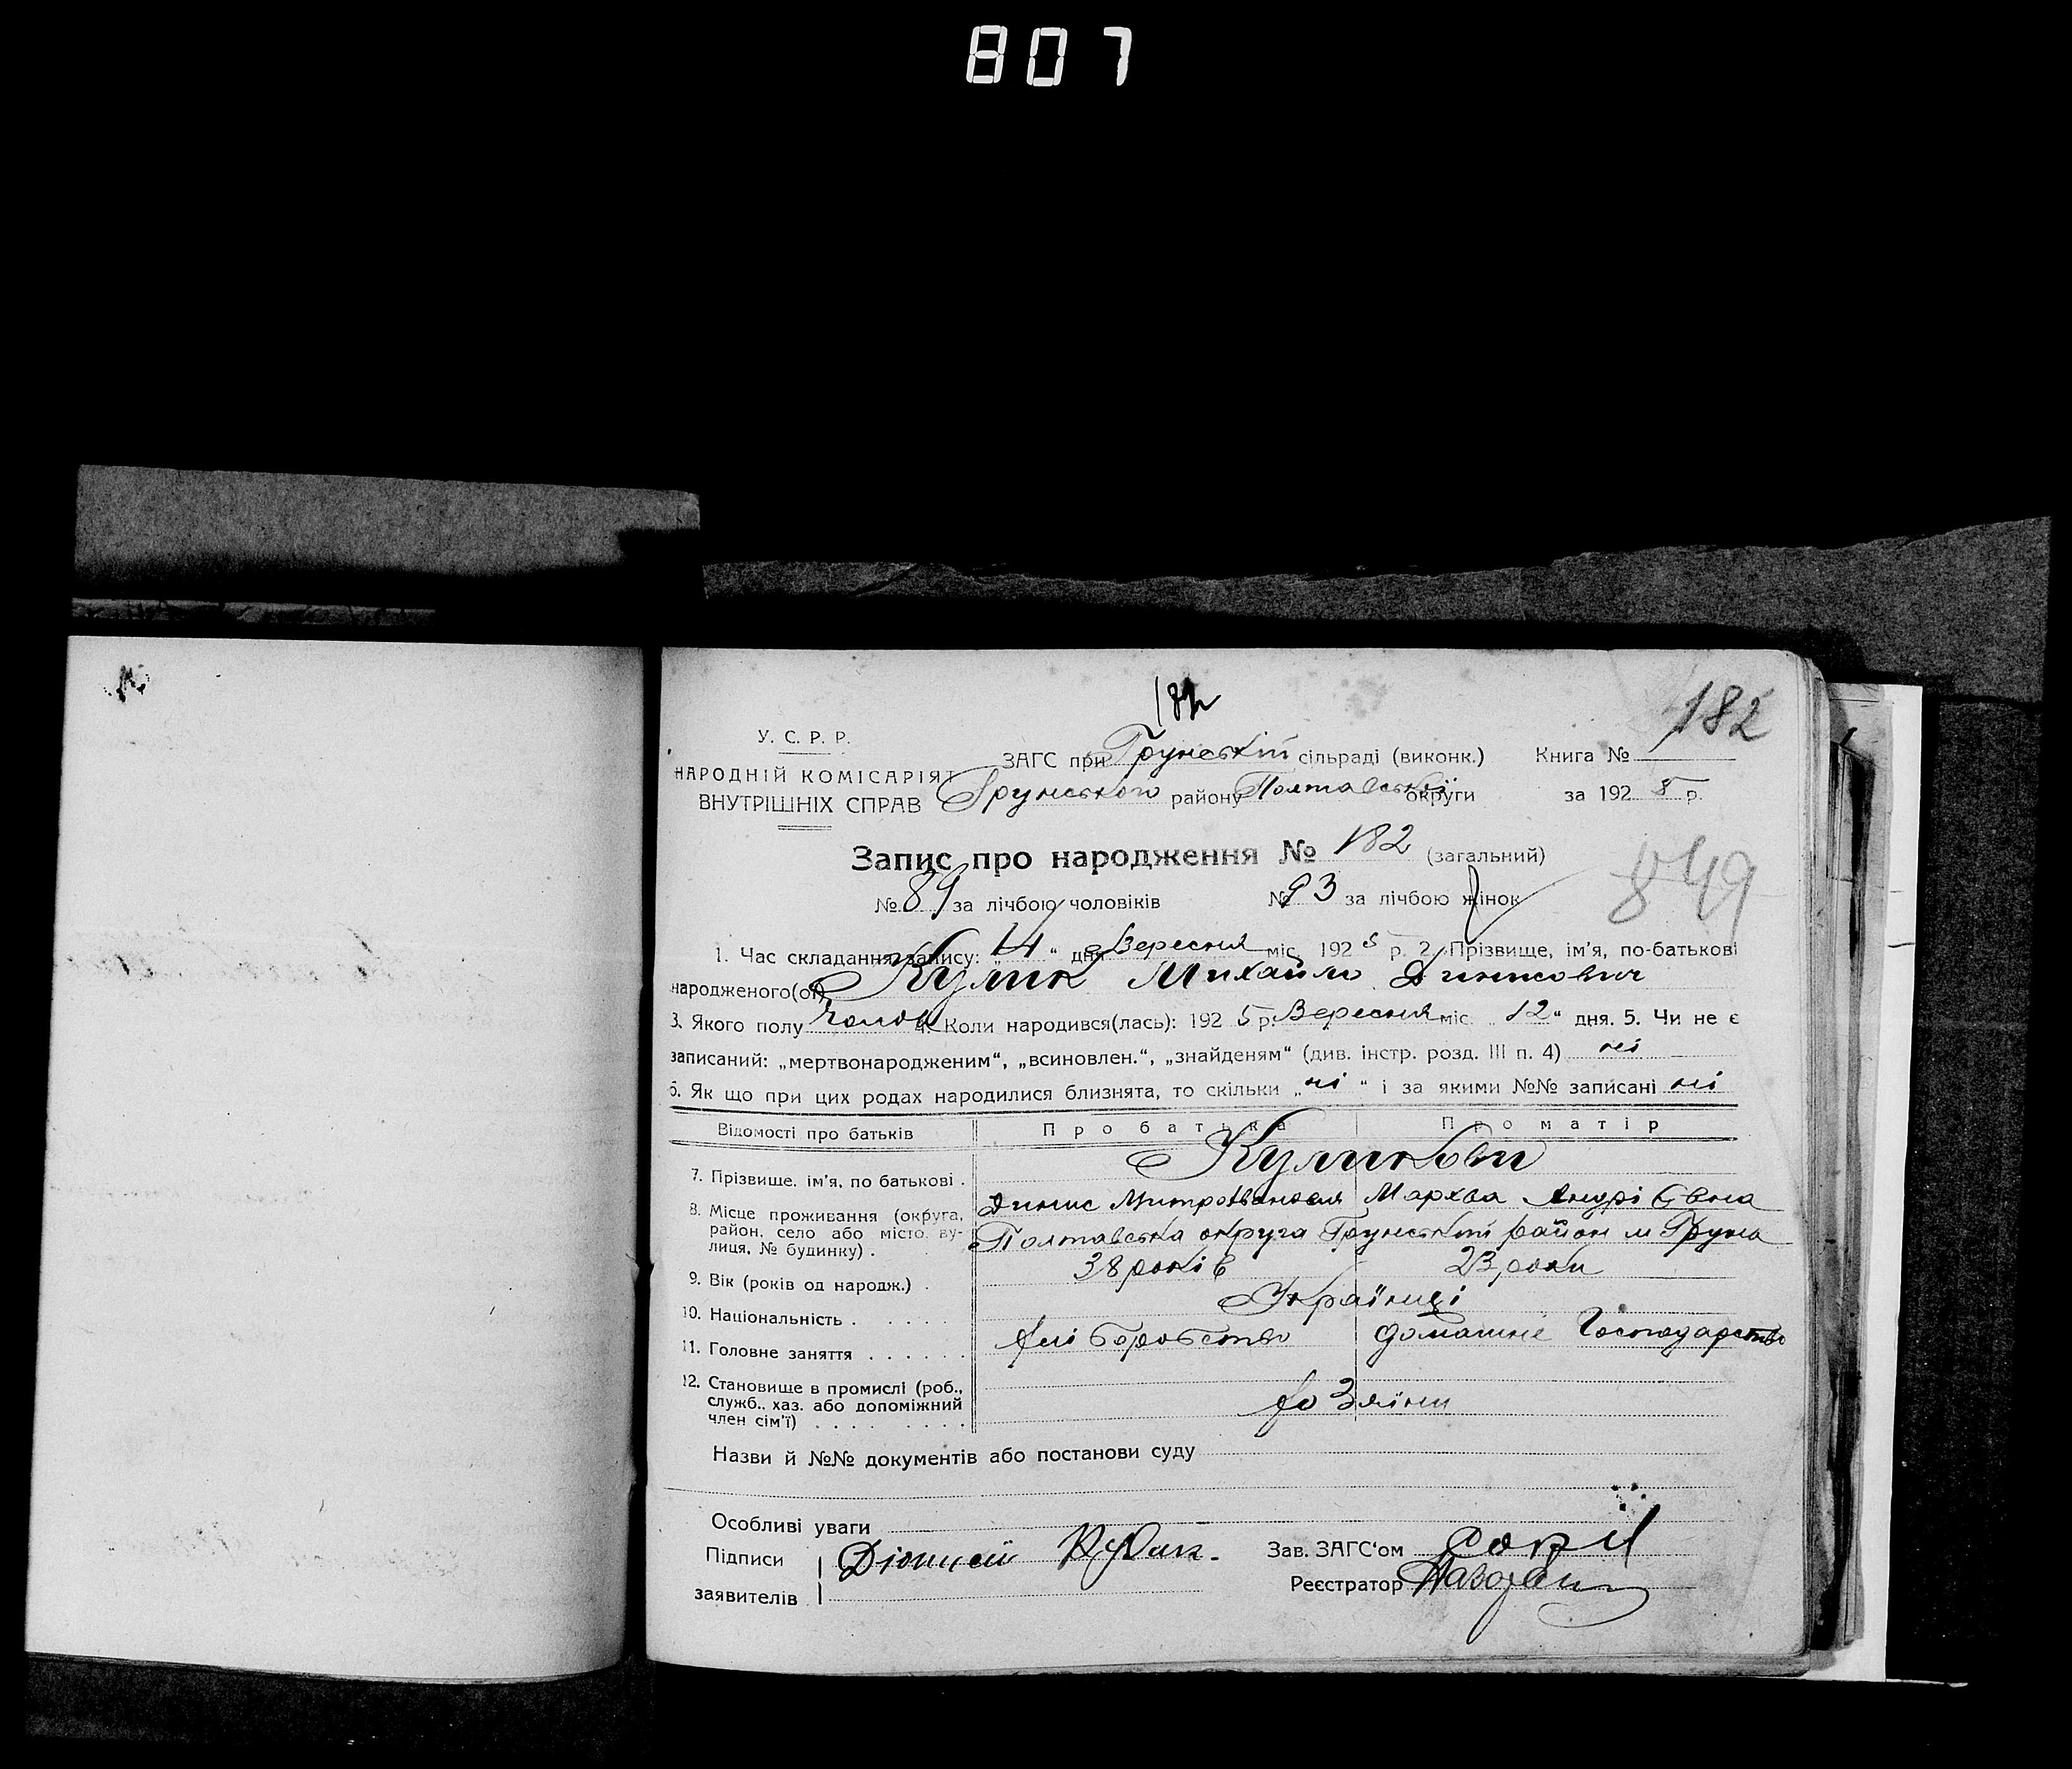 807
182
182
У. С. Р. Р.
ЗАГС при Грунській сільраді (виконк.) Книга №
НАРОДНІЙ КОМІСАРІЯТ
ВНУТРІШНІХ СПРАВ
Грунського району Полтавської округи за 1925 р.
Запис про народження № 182 (загальний)
849
№ 89 за лічбою чоловіків № 93 за лічбою жінок
1. Час складання запису: „14“ дня Вересня міс. 1925 р. 2. Прізвище, ім'я, по-батькові
народженого(ої) Кулик Михайло Динисович
3. Якого полу чолов 4. Коли народився(лась): 1925 р. Вересня міс. „12“ дня. 5. Чи не є
записаний: „мертвонародженим“, „всиновлен.“, „знайденям“ (див. інстр. розд. III п. 4) ні
6. Як що при цих родах народилися близнята, то скільки „ні“ і за якими №№ записані ні
Відомості про батьків Про батька Про матір
7. Прізвище, ім'я, по батькові . Куликови
Динис Мархва Андрієвна
8. Місце проживання (округа, район, село або місто, вулиця, № будинку) . Полтавська округа Грунський район м Грунь
9. Вік (років од народж.) . 38 років 23 роки
10. Національність . . . . . Українці
11. Головне заняття . . . . . . Хліборобство домашнє Господарство
12. Становище в промислі (роб.,
служб., хаз. або допоміжний
член сім'ї) . . . . . . . . Хозяїни
Назви й №№ документів або постанови суду
Особливі уваги
Підписи заявителів Діонисій Кулик. Зав. ЗАГС'ом
Реєстратор